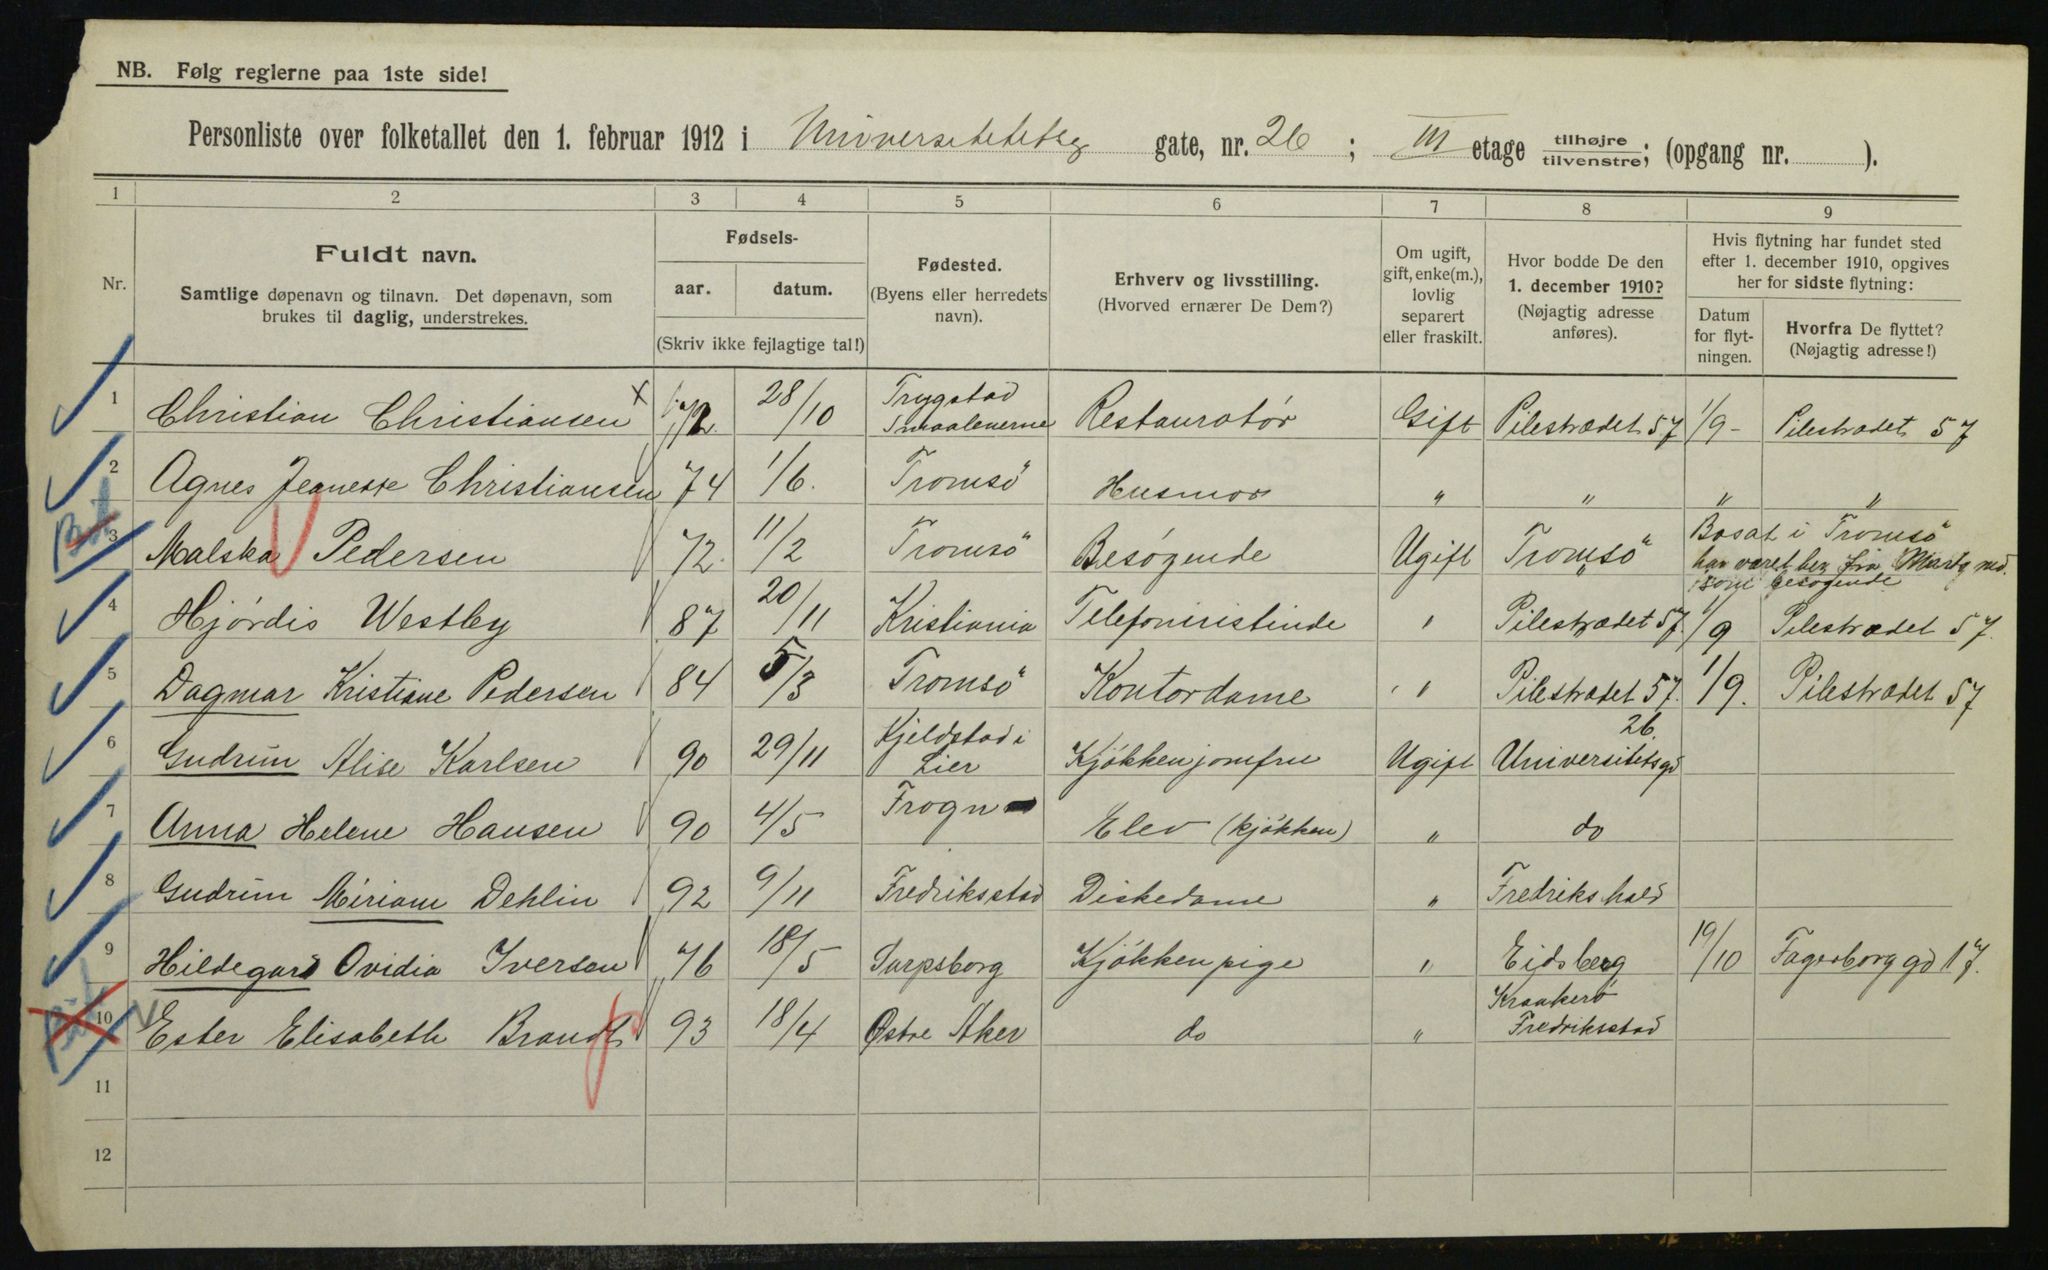 NB. Følg reglerne paa 1ste side!
Personliste over folketallet den 1. februar 1912 i Universitetetsg gate, nr. 26 ; III etage tilhøjre tilvenstre; (opgang nr. ).
1 2 3 4 5 6 7 8 9
Nr.
Fuldt navn.
Samtlige døpenavn og tilnavn. Det døpenavn, som
brukes til daglig, understrekes.
Fødsels-
aar. datum.
(Skriv ikke fejlagtige tal!)
Fødested.
(Byens eller herredets
navn).
Erhverv og livsstilling.
(Hvorved ernærer De Dem?)
Om ugift,
gift, enke(m.),
lovlig
separert
eller fraskilt.
Hvor bodde De den
1. december 1910?
(Nøjagtig adresse
anføres).
Hvis flytning har fundet sted
efter 1. december 1910, opgives
her for sidste flytning:
Datum
for flyt-
ningen.
Hvorfra De flyttet?
(Nøjagtig adresse!)
1 Christian Christiansen x 72. 28/10 Trygstad Smaalenerne Restauratør Gift Pilestrædet 57 1/9- Pilestrædet 57
2 Agnes Jeanette Christiansen 74 1/6. Tromsö Husmor " " " "
3 Malska Pedersen 72. 11/2 Tromsö Besøgende Ugift Tromsö Bosat i Tromsö
har været her fra
som besøgende
4 Hjördis Westby 87 20/11 Kristiania Telefonistinde " Pilestrædet 57. 1/9 Pilestrædet 57.
5 Dagmar Kristiane Pedersen 84 5/3 Tromsö Kontordame " Pilestrædet 57. 1/9. Pilestrædet 57
6 Gudrun Alise Karlsen 90 29/11 Kjeldstad i Lier Kjökkenjomfru Ugift Universitetsgd 26.
7 Anna Helene Hansen 90 4/5 Frogn Elev (kjökken) " do
8 Gudrun Miriam Dehlin 92 9/11 Fredriksstad Diskedame " Fredrikshald
9 Hildegard Ovidia Iversen 76 18/5 Sarpsborg Kjökkenpige " Eidsberg 19/10 Fagerborg gd 17.
10 Ester Elisabeth Brandt 93 18/4 Østre Aker do " Kraakerö Fredriksstad
11
12